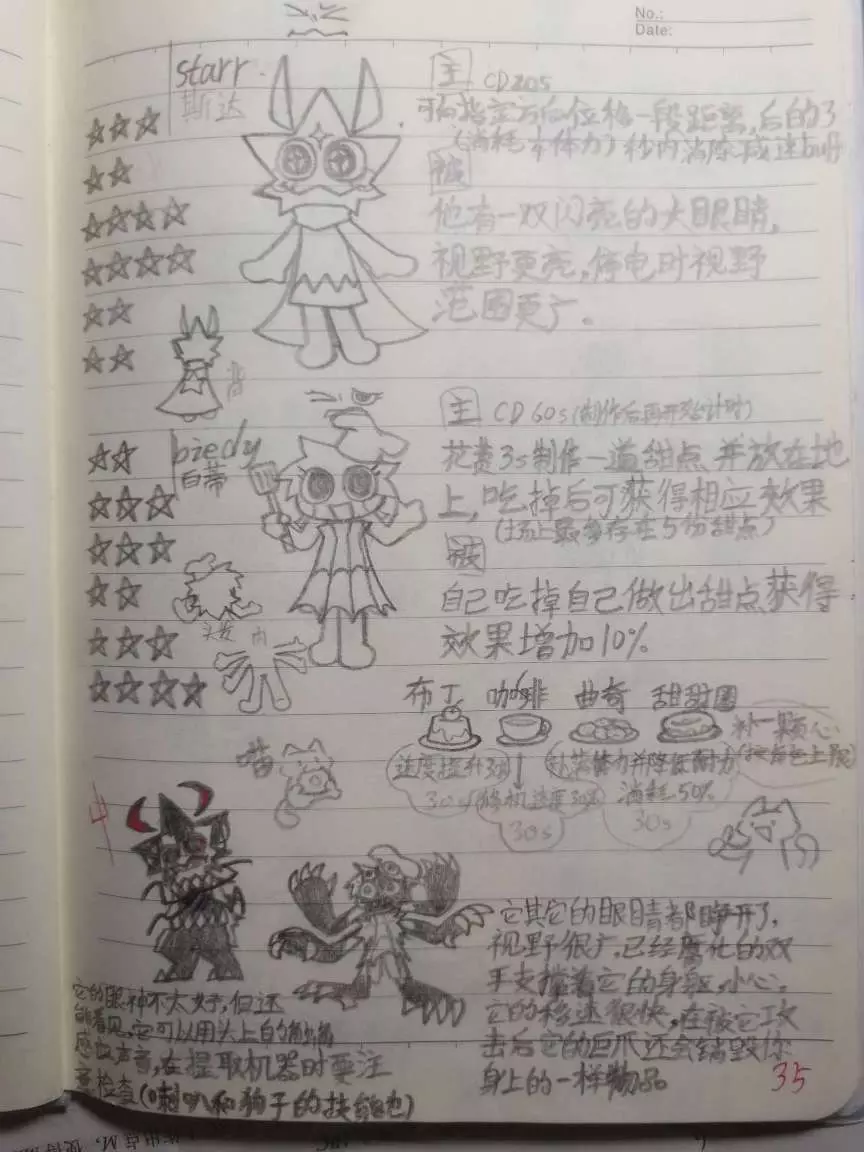 No.:
Date:
starr
斯达
主 CD20s
可向指定方向位移一段距离,后的3
(消耗半体力)秒内消除减速buff
被
他有一双闪亮的大眼睛,
视野更亮,停电时视野
范围更广。
背
biedy
白蒂
主 CD60s(制作后再开始计时)
花费3s制作一道甜点并放在地
上,吃掉后可获得相应效果
(场上最多存在5份甜点)
被
自己吃掉自己做出甜点获得
效果增加10%
头发 内
布丁 咖啡 曲奇 甜甜圈
补一颗心
速度提升
30s
修机速度30%
30s
体力并降低耐力
消耗50%
30s
喵
它的眼神不太好,但还
能看见,它可以用头上的触角
感知声音,在提取机器时要注
意检查(喇叭和狗子的技能包)
它其它的眼睛都睁开了,
视野很广,已经腐化的双
手支撑着它的身躯,小心,
它的移速很快,在被它攻
击后它的巨爪还会销毁你
身上的一样物品
35